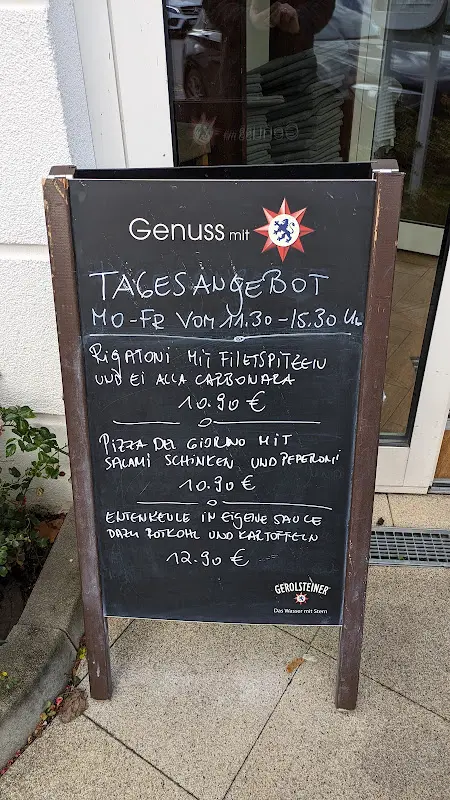 Genuss mit
TAGESANGEBOT
MO-FR VOM 11.30-15.30 U
RIGATONI MIT FILETSPITZEN
UND EI ALLA CARBONARA
10.90 €
PIZZA DEL GIORNO MIT
SALAMI SCHINKEN UND PEPERONI
10.90 €
ENTENKEULE IN EIGENE SAUCE
DAZU ROTKOHL UND KARTOFFELN
12.90 €
GEROLSTEINER
Das Wasser mit Stern